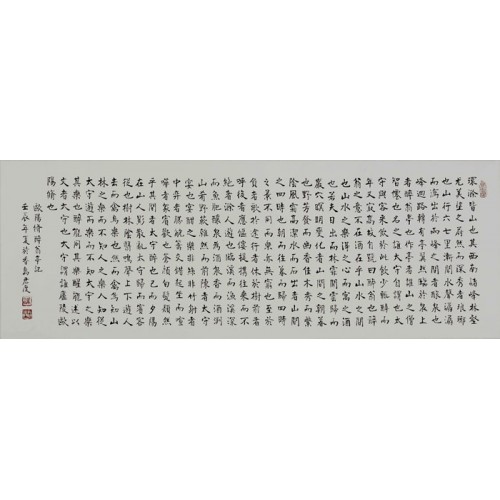 環滁皆山也其西南諸峰林壑
尤美望之蔚然而深秀者琅琊
也山行六七里漸聞水聲潺潺
而瀉出於兩峰之間者釀泉也
峰迴路轉有亭翼然臨於泉上
者醉翁亭也作亭者誰山之僧
智僊也名之誰太守自謂也太
守與客來飲於此飲少輒醉而
年又最高故自號曰醉翁也醉
翁之意不在酒在乎山水之間
也山水之樂得之心而寓之酒
也若夫日出而林霏開雲歸而
巖穴暝晦明變化者山間之朝暮
也野芳發而幽香佳木秀而繁
陰風霜高潔水落而石出者山間
之四時也朝而往暮而歸四時
之景不同而樂亦無窮也至於
負者歌於途行者休於樹前者
呼後者應傴僂提攜往來而不
絕者滁人遊也臨溪而漁溪深
而魚肥釀泉為酒泉香而酒洌
山肴野蔌雜然而前陳者太守
宴也宴酣之樂非絲非竹射者
中弈者勝觥籌交錯起坐而諠
譁者眾賓歡也蒼顏白髮頹然
乎其間者太守醉也已而夕陽
在山人影散亂太守歸而賓客
從也樹林陰翳鳴聲上下遊人
去而禽鳥樂也然而禽鳥知山
林之樂而不知人之樂人知從
太守遊而樂而不知太守之樂
其樂也醉能同其樂醒能述以
文者太守也太守謂誰廬陵歐
陽脩也
歐陽脩醉翁亭記
壬辰年夏於香島